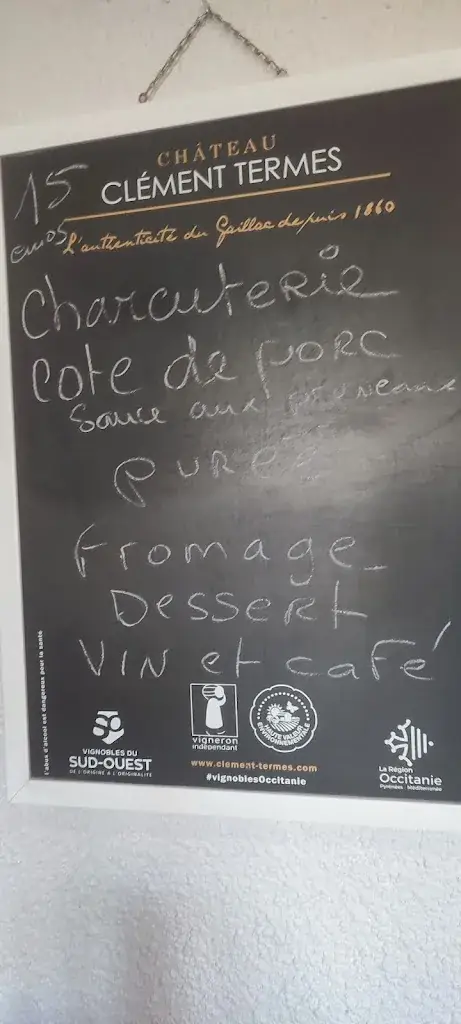 CHÂTEAU
CLÉMENT TERMES
15
euros
L'authenticité du Gaillac depuis 1860
Charcuterie
Cote de porc
Sauce aux pruneaux
purée
Fromage
Dessert
VIN et café
l'abus d'alcool est dangereux pour la santé
VIGNOBLES DU
SUD-OUEST
DE L'ORIGINE À L'ORIGINALITÉ
vigneron
indépendant
HAUTE VALEUR
ENVIRONNEMENTALE
www.clement-termes.com
#vignoblesOccitanie
La Région
Occitanie
Pyrénées - Méditerranée